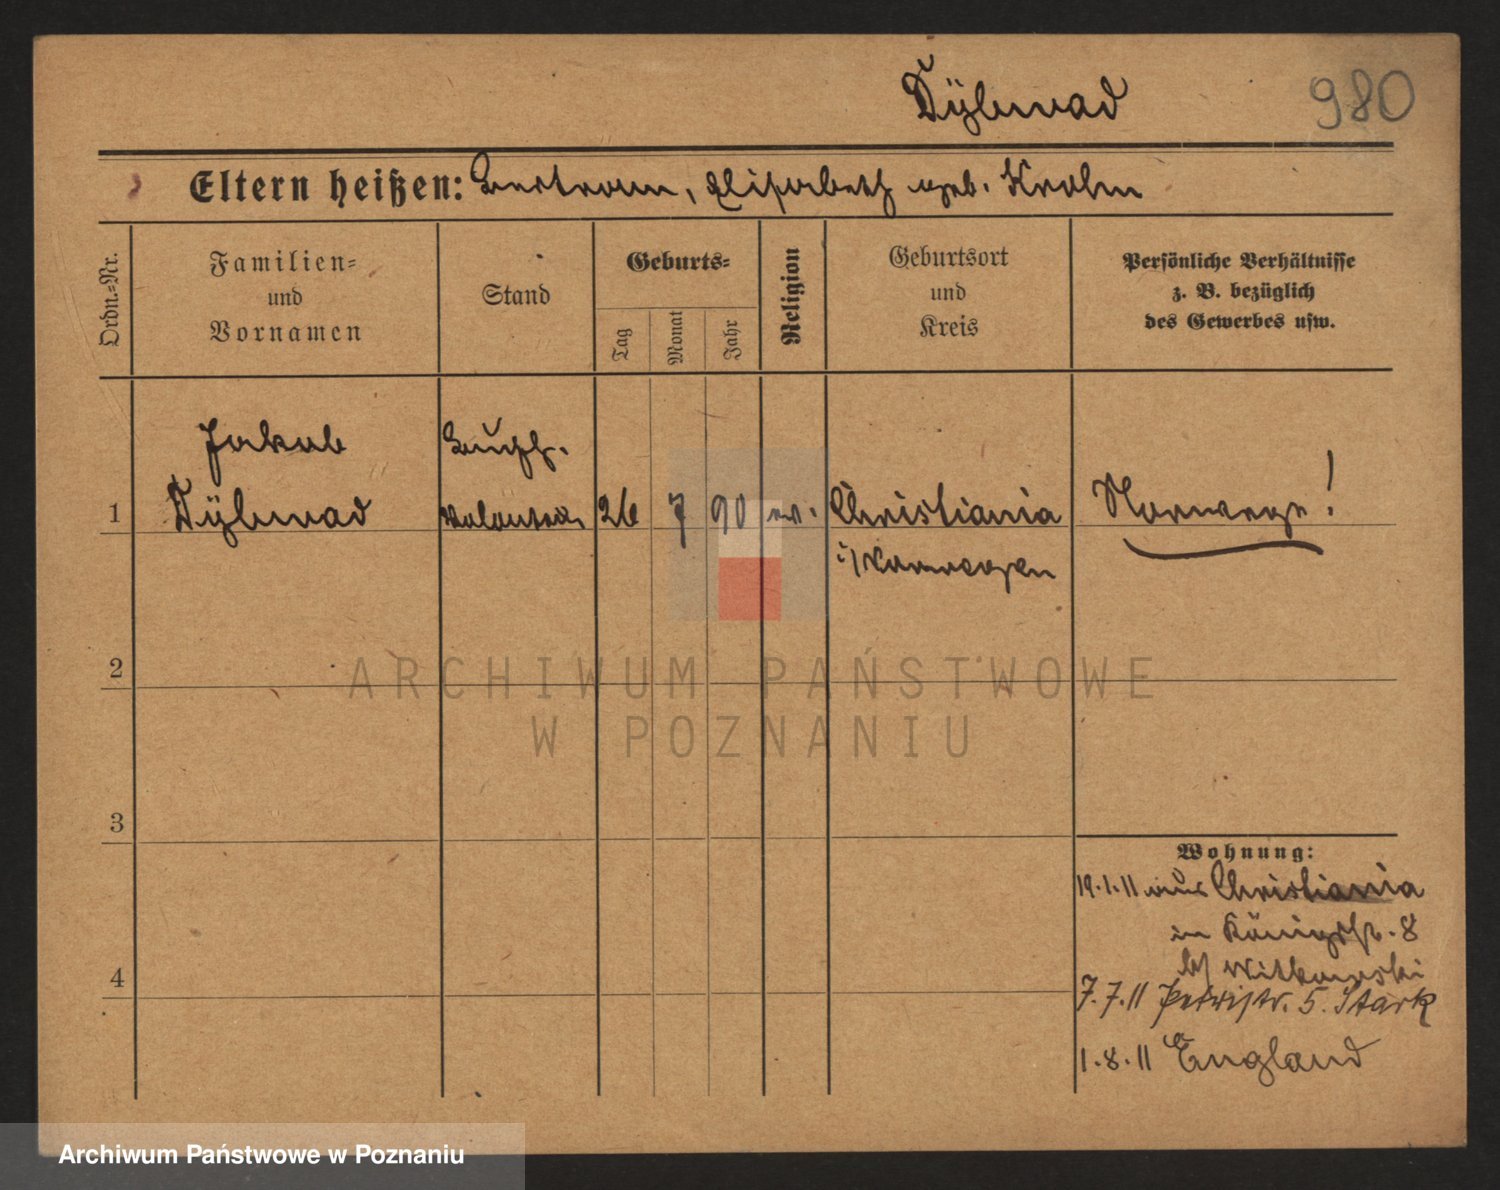 Dybwad
980
Eltern heißen: Bertram, Elisabeth geb. Krohn
Ordn.=Nr.
Familien=
und
Vornamen
Stand
Geburts=
Tag
Monat
Jahr
Religion
Geburtsort
und
Kreis
Persönliche Verhältnisse
z. B. bezüglich
des Gewerbes usw.
Jakob
Buchh.
1 Dybwad Volontär 26 7 90 ev. Christiania Norweger!
i/Norwegen
2
3
4
Wohnung:
19.1.11 aus Christiania
in Königstr. 8
b/ Witkowski
7.7.11 Petristr. 5. Stark
1.8.11 England
ARCHIWUM PAŃSTWOWE
W POZNANIU
Archiwum Państwowe w Poznaniu